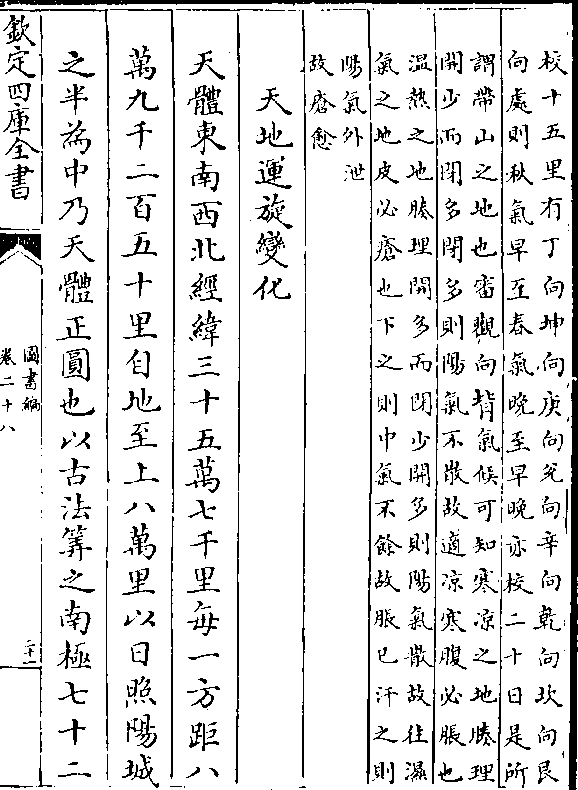 校十五里有丁向坤向庚向兊向辛向乾向坎向艮
向處則秋氣早至春氣晚至早晚亦校二十日是所
謂帶山之地也審觀向背氣候可知寒凉之地腠理
開少而閉多閉多則陽氣不散故適凉寒腹必脹也
温熱之地腠理開多而閉少開多則陽氣散故往濕
氣之地皮必瘡也下之則中氣不餘故脹已汗之則
陽氣外泄
故瘡愈
天地運旋變化
天體東南西北經緯三十五萬七千里每一方距八
萬九千二百五十里自地至上八萬里以日照陽城
之半為中乃天體正圓也以古法筭之南極七十二
欽定四庫全書
圖書編
卷二十八
二十一